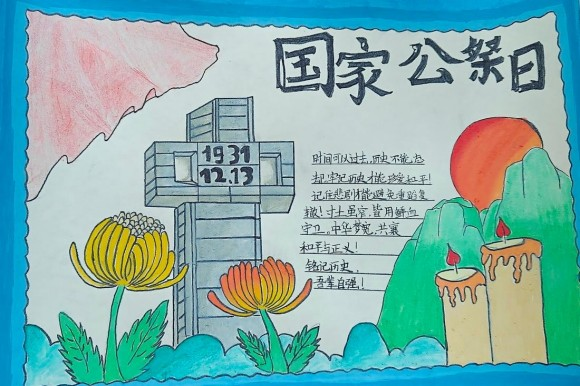 国家公祭日
1931
12.13
时间可以过去,历史不能忘
却,牢记历史才能珍爱和平!
记住悲剧才能避免重蹈覆
辙!寸土皆用鲜血
守卫。中华梦,共襄
和平与正义!
铭记历史,
吾辈自强!